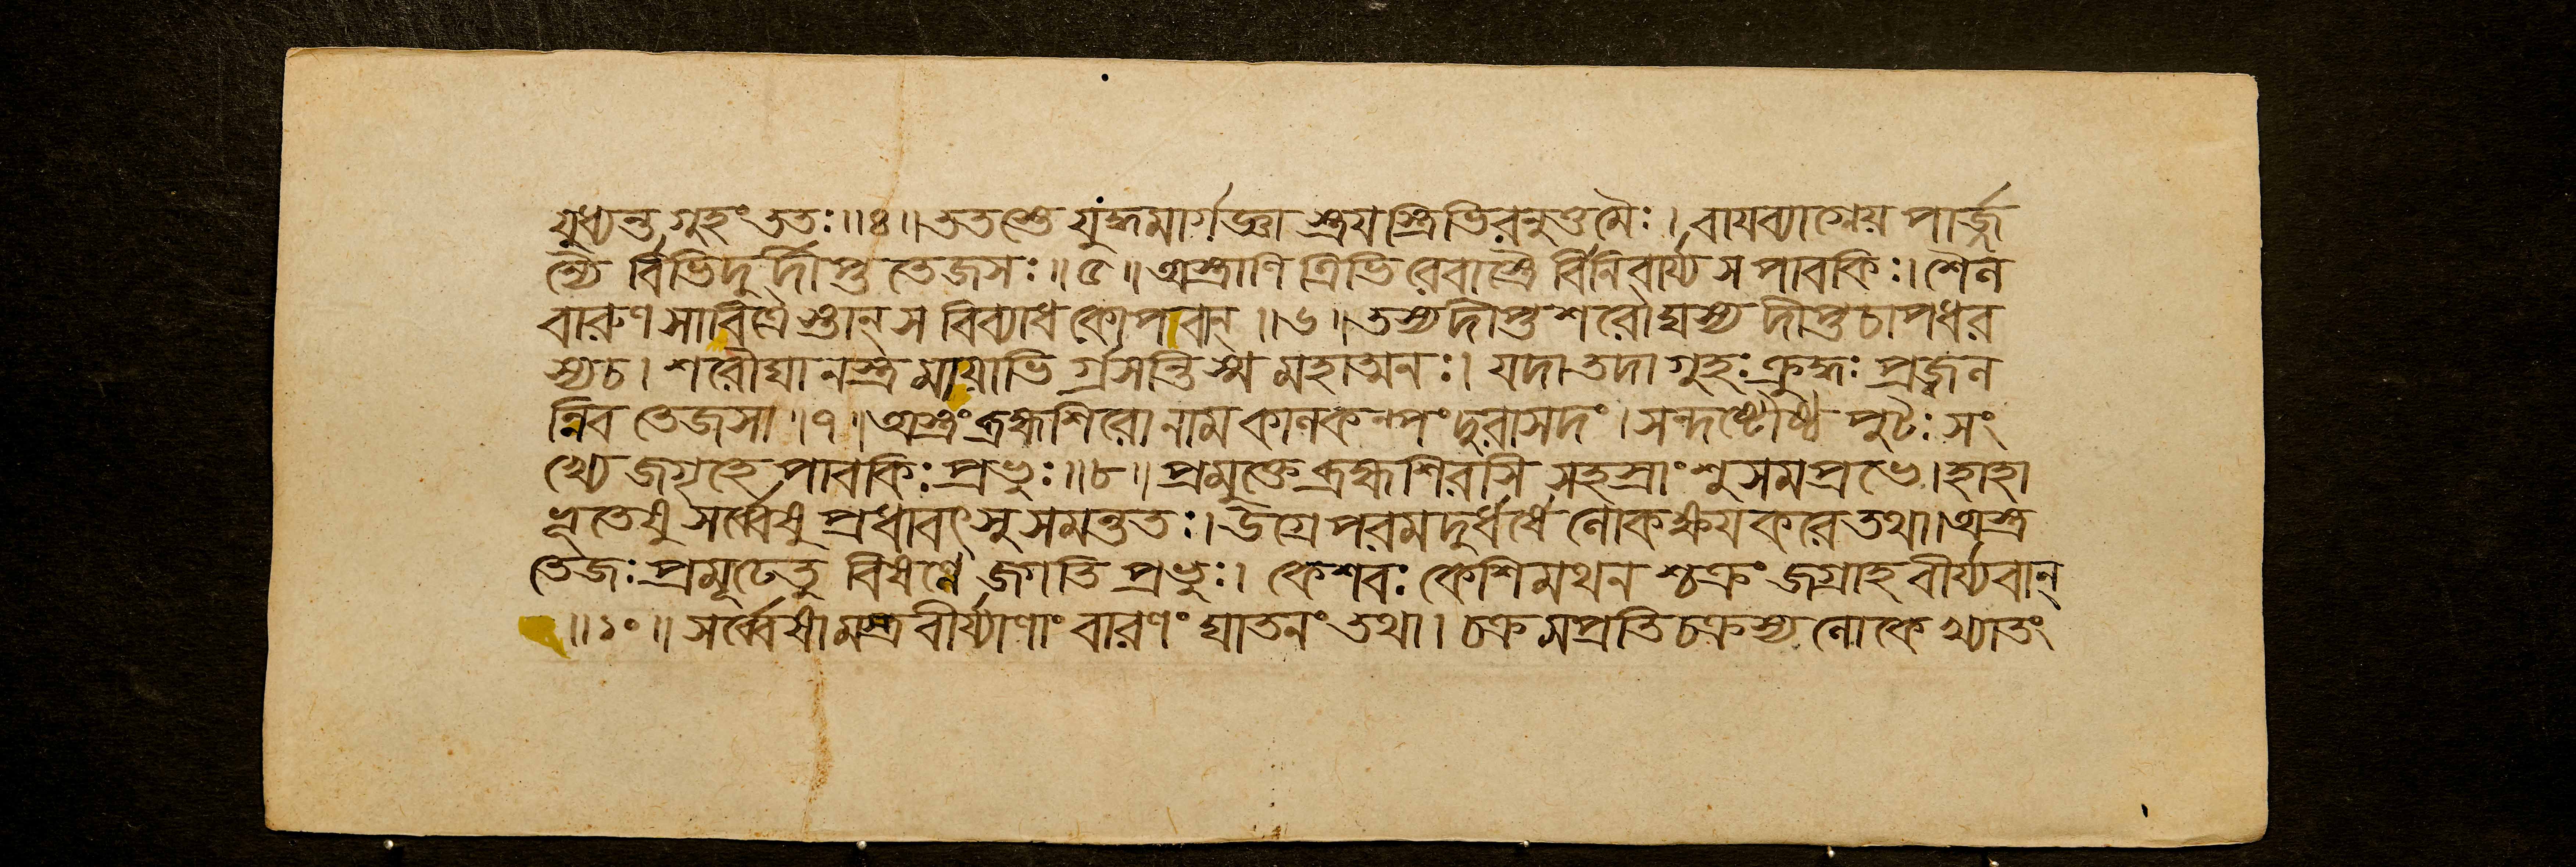 যুধ্যন্ত গুহং ততঃ॥৪॥ততস্তে যুদ্ধমার্গজ্ঞা স্ত্রয়স্ত্রিভিরনুত্তমৈঃ। বায়ব্যাগ্নেয় পার্জ্জ
ন্যৈ র্বিভিদুর্দীপ্ত তেজসঃ॥৫॥অস্ত্রাণি ত্রিভিরেবাস্ত্রৈ র্বিনিবার্য্য স পাবকিঃ। শৈল
বারুণ সাবিত্রৈ স্তান্ স বিব্যাধ কোপবান্॥৬॥তস্য দীপ্ত শরৌঘস্য দীপ্ত চাপধর
স্যচ। শরৌঘানস্ত্র মায়াভি র্গ্রসন্তি স্ম মহাত্মনঃ। যদা তদা গুহঃ ক্রুদ্ধঃ প্রজ্বল
ন্নিব তেজসা॥৭॥অস্ত্রং ব্রহ্মশিরো নাম কালকল্পং দুরাসদং। সন্দষ্টৌষ্ঠ পুটঃ সং
খ্যে জগৃহে পাবকিঃ প্রভুঃ॥৮॥প্রমুক্তে ব্রহ্মশিরসি সহস্রাংশুসমপ্রভে। হাহা
ভূতেষু সর্ব্বেষু প্রধাবৎসু সমন্ততঃ। উগ্রে পরমদুর্ধর্ষে লোকক্ষয়করে তথা। অস্ত্র
তেজঃ প্রমূঢ়েতু বিষণ্ণে জগতি প্রভুঃ। কেশবঃ কেশিমথন শ্চক্রং জগ্রাহ বীর্য্যবান্
॥১০॥ সর্ব্বেষামস্ত্রবীর্য্যাণাং বারণং ঘাতনং তথা। চক্রমপ্রতিচক্রস্য লোকে খ্যাতং